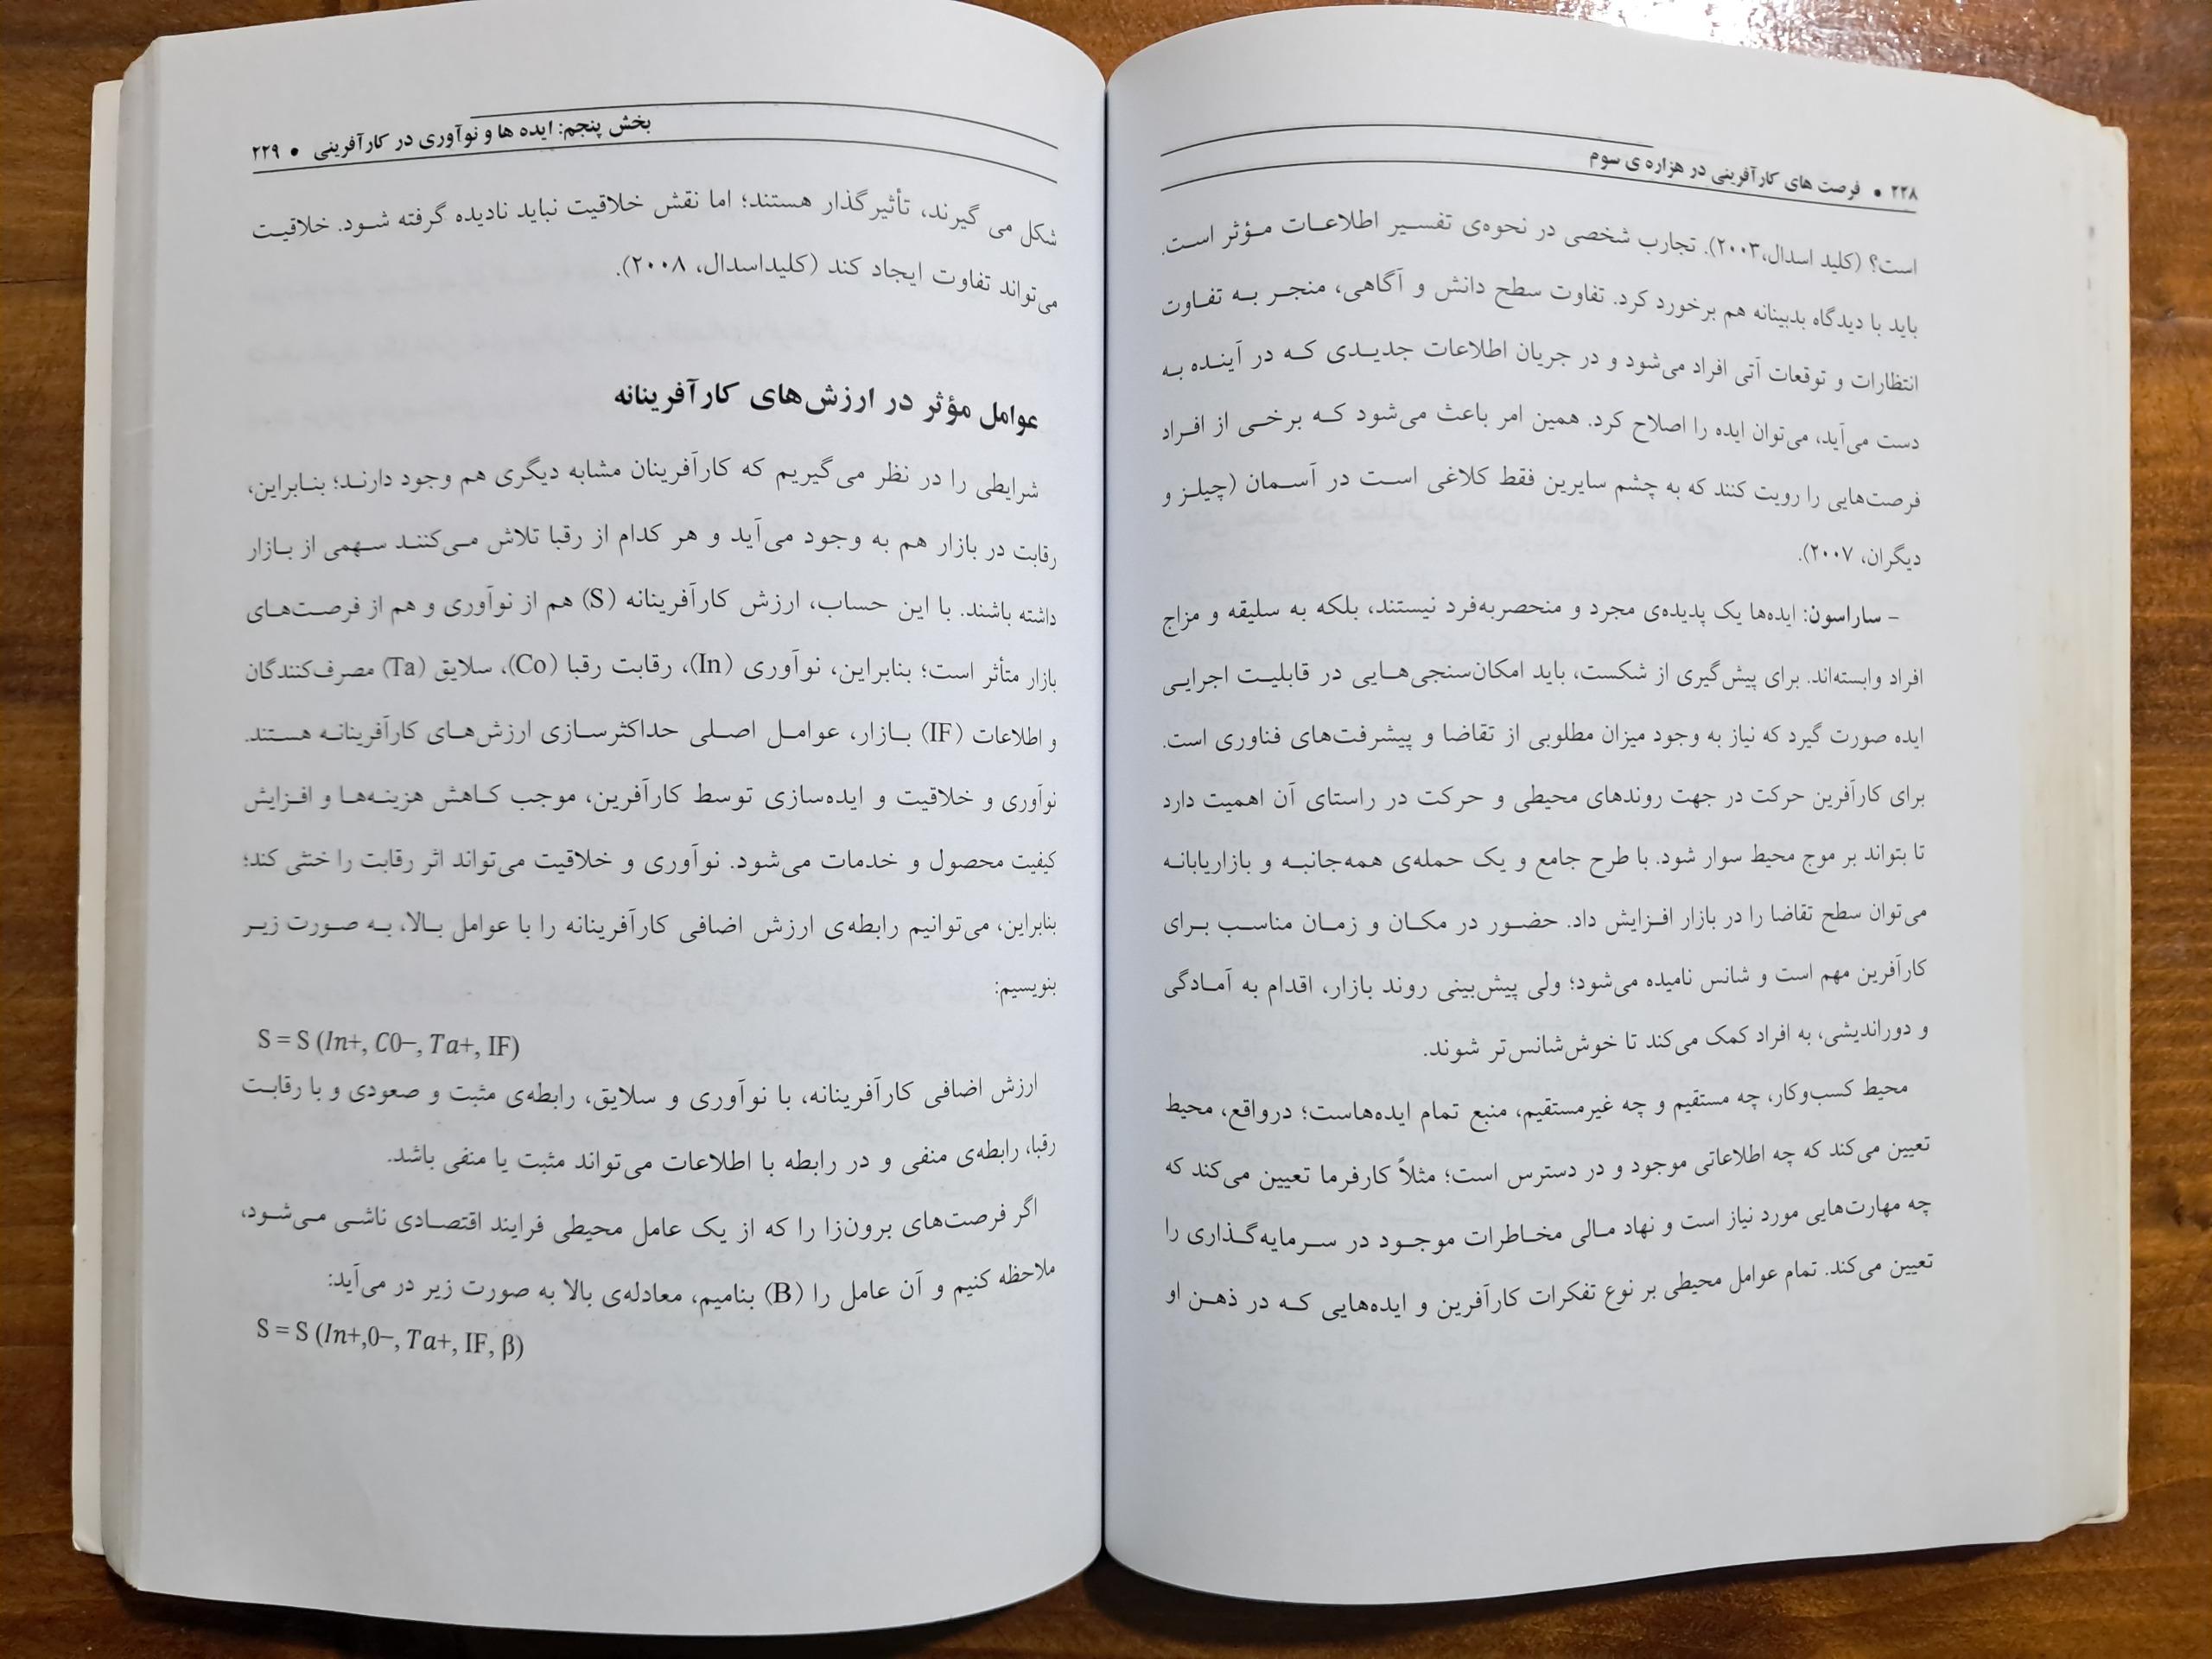 ۲۲۸ • فرصت های کارآفرینی در هزاره ی سوم
است؟ (کلید اسدال،۲۰۰۳). تجارب شخصی در نحوه‌ی تفسیر اطلاعات مؤثر است.
باید با دیدگاه بدبینانه هم برخورد کرد. تفاوت سطح دانش و آگاهی، منجر به تفاوت
انتظارات و توقعات آتی افراد می‌شود و در جریان اطلاعات جدیدی که در آینده به
دست می‌آید، می‌توان ایده را اصلاح کرد. همین امر باعث می‌شود که برخی از افراد
فرصت‌هایی را رویت کنند که به چشم سایرین فقط کلاغی است در آسمان (چیلز و
دیگران، ۲۰۰۷).
- ساراسون: ایده‌ها یک پدیده‌ی مجرد و منحصربه‌فرد نیستند، بلکه به سلیقه و مزاج
افراد وابسته‌اند. برای پیش‌گیری از شکست، باید امکان‌سنجی‌هایی در قابلیت اجرایی
ایده صورت گیرد که نیاز به وجود میزان مطلوبی از تقاضا و پیشرفت‌های فناوری است.
برای کارآفرین حرکت در جهت روندهای محیطی و حرکت در راستای آن اهمیت دارد
تا بتواند بر موج محیط سوار شود. با طرح جامع و یک حمله‌ی همه‌جانبه و بازاریابانه
می‌توان سطح تقاضا را در بازار افزایش داد. حضور در مکان و زمان مناسب برای
کارآفرین مهم است و شانس نامیده می‌شود؛ ولی پیش‌بینی روند بازار، اقدام به آمادگی
و دوراندیشی، به افراد کمک می‌کند تا خوش‌شانس‌تر شوند.
محیط کسب‌وکار، چه مستقیم و چه غیرمستقیم، منبع تمام ایده‌هاست؛ درواقع، محیط
تعیین می‌کند که چه اطلاعاتی موجود و در دسترس است؛ مثلاً کارفرما تعیین می‌کند که
چه مهارت‌هایی مورد نیاز است و نهاد مالی مخاطرات موجود در سرمایه‌گذاری را
تعیین می‌کند. تمام عوامل محیطی بر نوع تفکرات کارآفرین و ایده‌هایی که در ذهن او
بخش پنجم: ایده ها و نوآوری در کارآفرینی • ۲۲۹
شکل می گیرند، تأثیرگذار هستند؛ اما نقش خلاقیت نباید نادیده گرفته شود. خلاقیت
می‌تواند تفاوت ایجاد کند (کلیداسدال، ۲۰۰۸).
عوامل مؤثر در ارزش‌های کارآفرینانه
شرایطی را در نظر می‌گیریم که کارآفرینان مشابه دیگری هم وجود دارند؛ بنابراین،
رقابت در بازار هم به وجود می‌آید و هر کدام از رقبا تلاش می‌کنند سهمی از بازار
داشته باشند. با این حساب، ارزش کارآفرینانه (S) هم از نوآوری و هم از فرصت‌های
بازار متأثر است؛ بنابراین، نوآوری (In)، رقابت رقبا (Co)، سلایق (Ta) مصرف‌کنندگان
و اطلاعات (IF) بازار، عوامل اصلی حداکثرسازی ارزش‌های کارآفرینانه هستند.
نوآوری و خلاقیت و ایده‌سازی توسط کارآفرین، موجب کاهش هزینه‌ها و افزایش
کیفیت محصول و خدمات می‌شود. نوآوری و خلاقیت می‌تواند اثر رقابت را خنثی کند؛
بنابراین، می‌توانیم رابطه‌ی ارزش اضافی کارآفرینانه را با عوامل بالا، به صورت زیر
بنویسیم:
S = S (In+, C0−, Ta+, IF)
ارزش اضافی کارآفرینانه، با نوآوری و سلایق، رابطه‌ی مثبت و صعودی و با رقابت
رقبا، رابطه‌ی منفی و در رابطه با اطلاعات می‌تواند مثبت یا منفی باشد.
اگر فرصت‌های برون‌زا را که از یک عامل محیطی فرایند اقتصادی ناشی می‌شود،
ملاحظه کنیم و آن عامل را (B) بنامیم، معادله‌ی بالا به صورت زیر در می‌آید:
S = S (In+,0−, Ta+, IF, β)